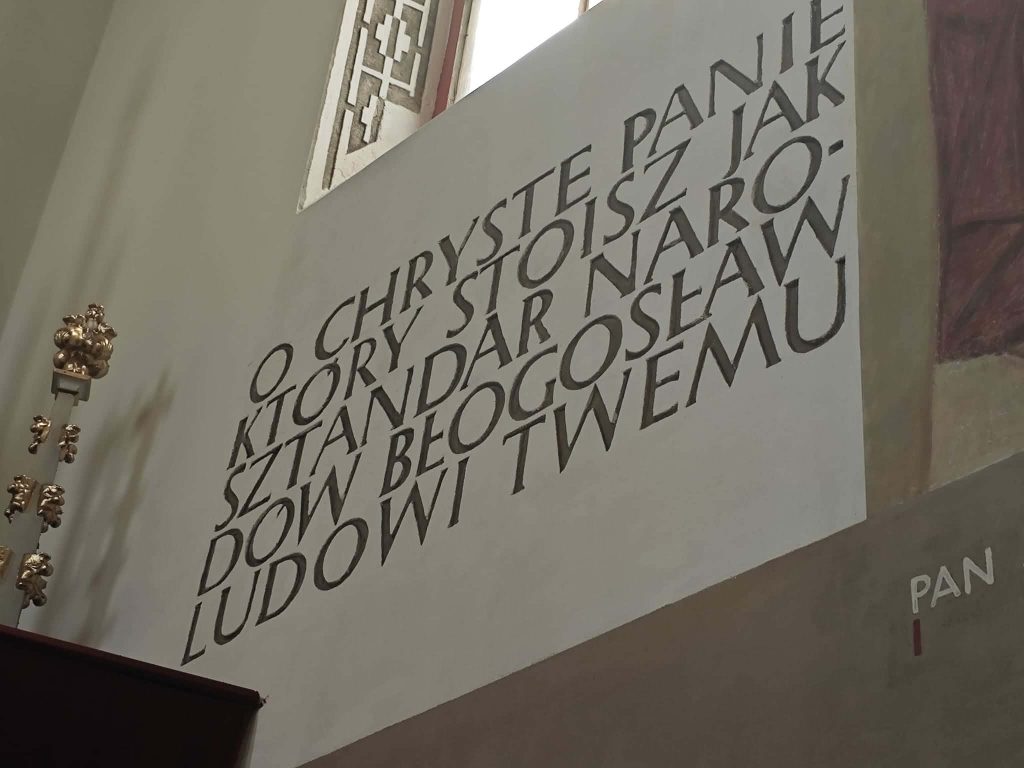 O CHRYSTE PANIE
KTÓRY STOISZ JAK
SZTANDAR NARO-
DOW BŁOGOSŁAW
LUDOWI TWEMU
PAN